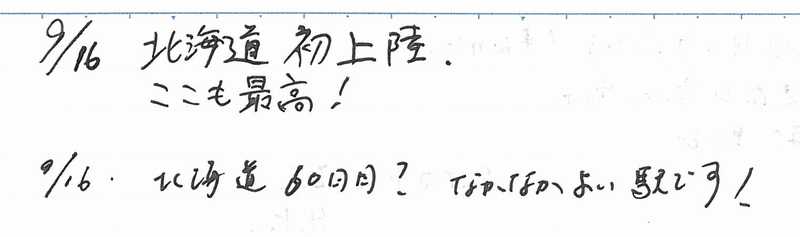 9/16 北海道 初上陸.
ここも最高！
9/16. 北海道 60日目？ なかなかよい駅です！